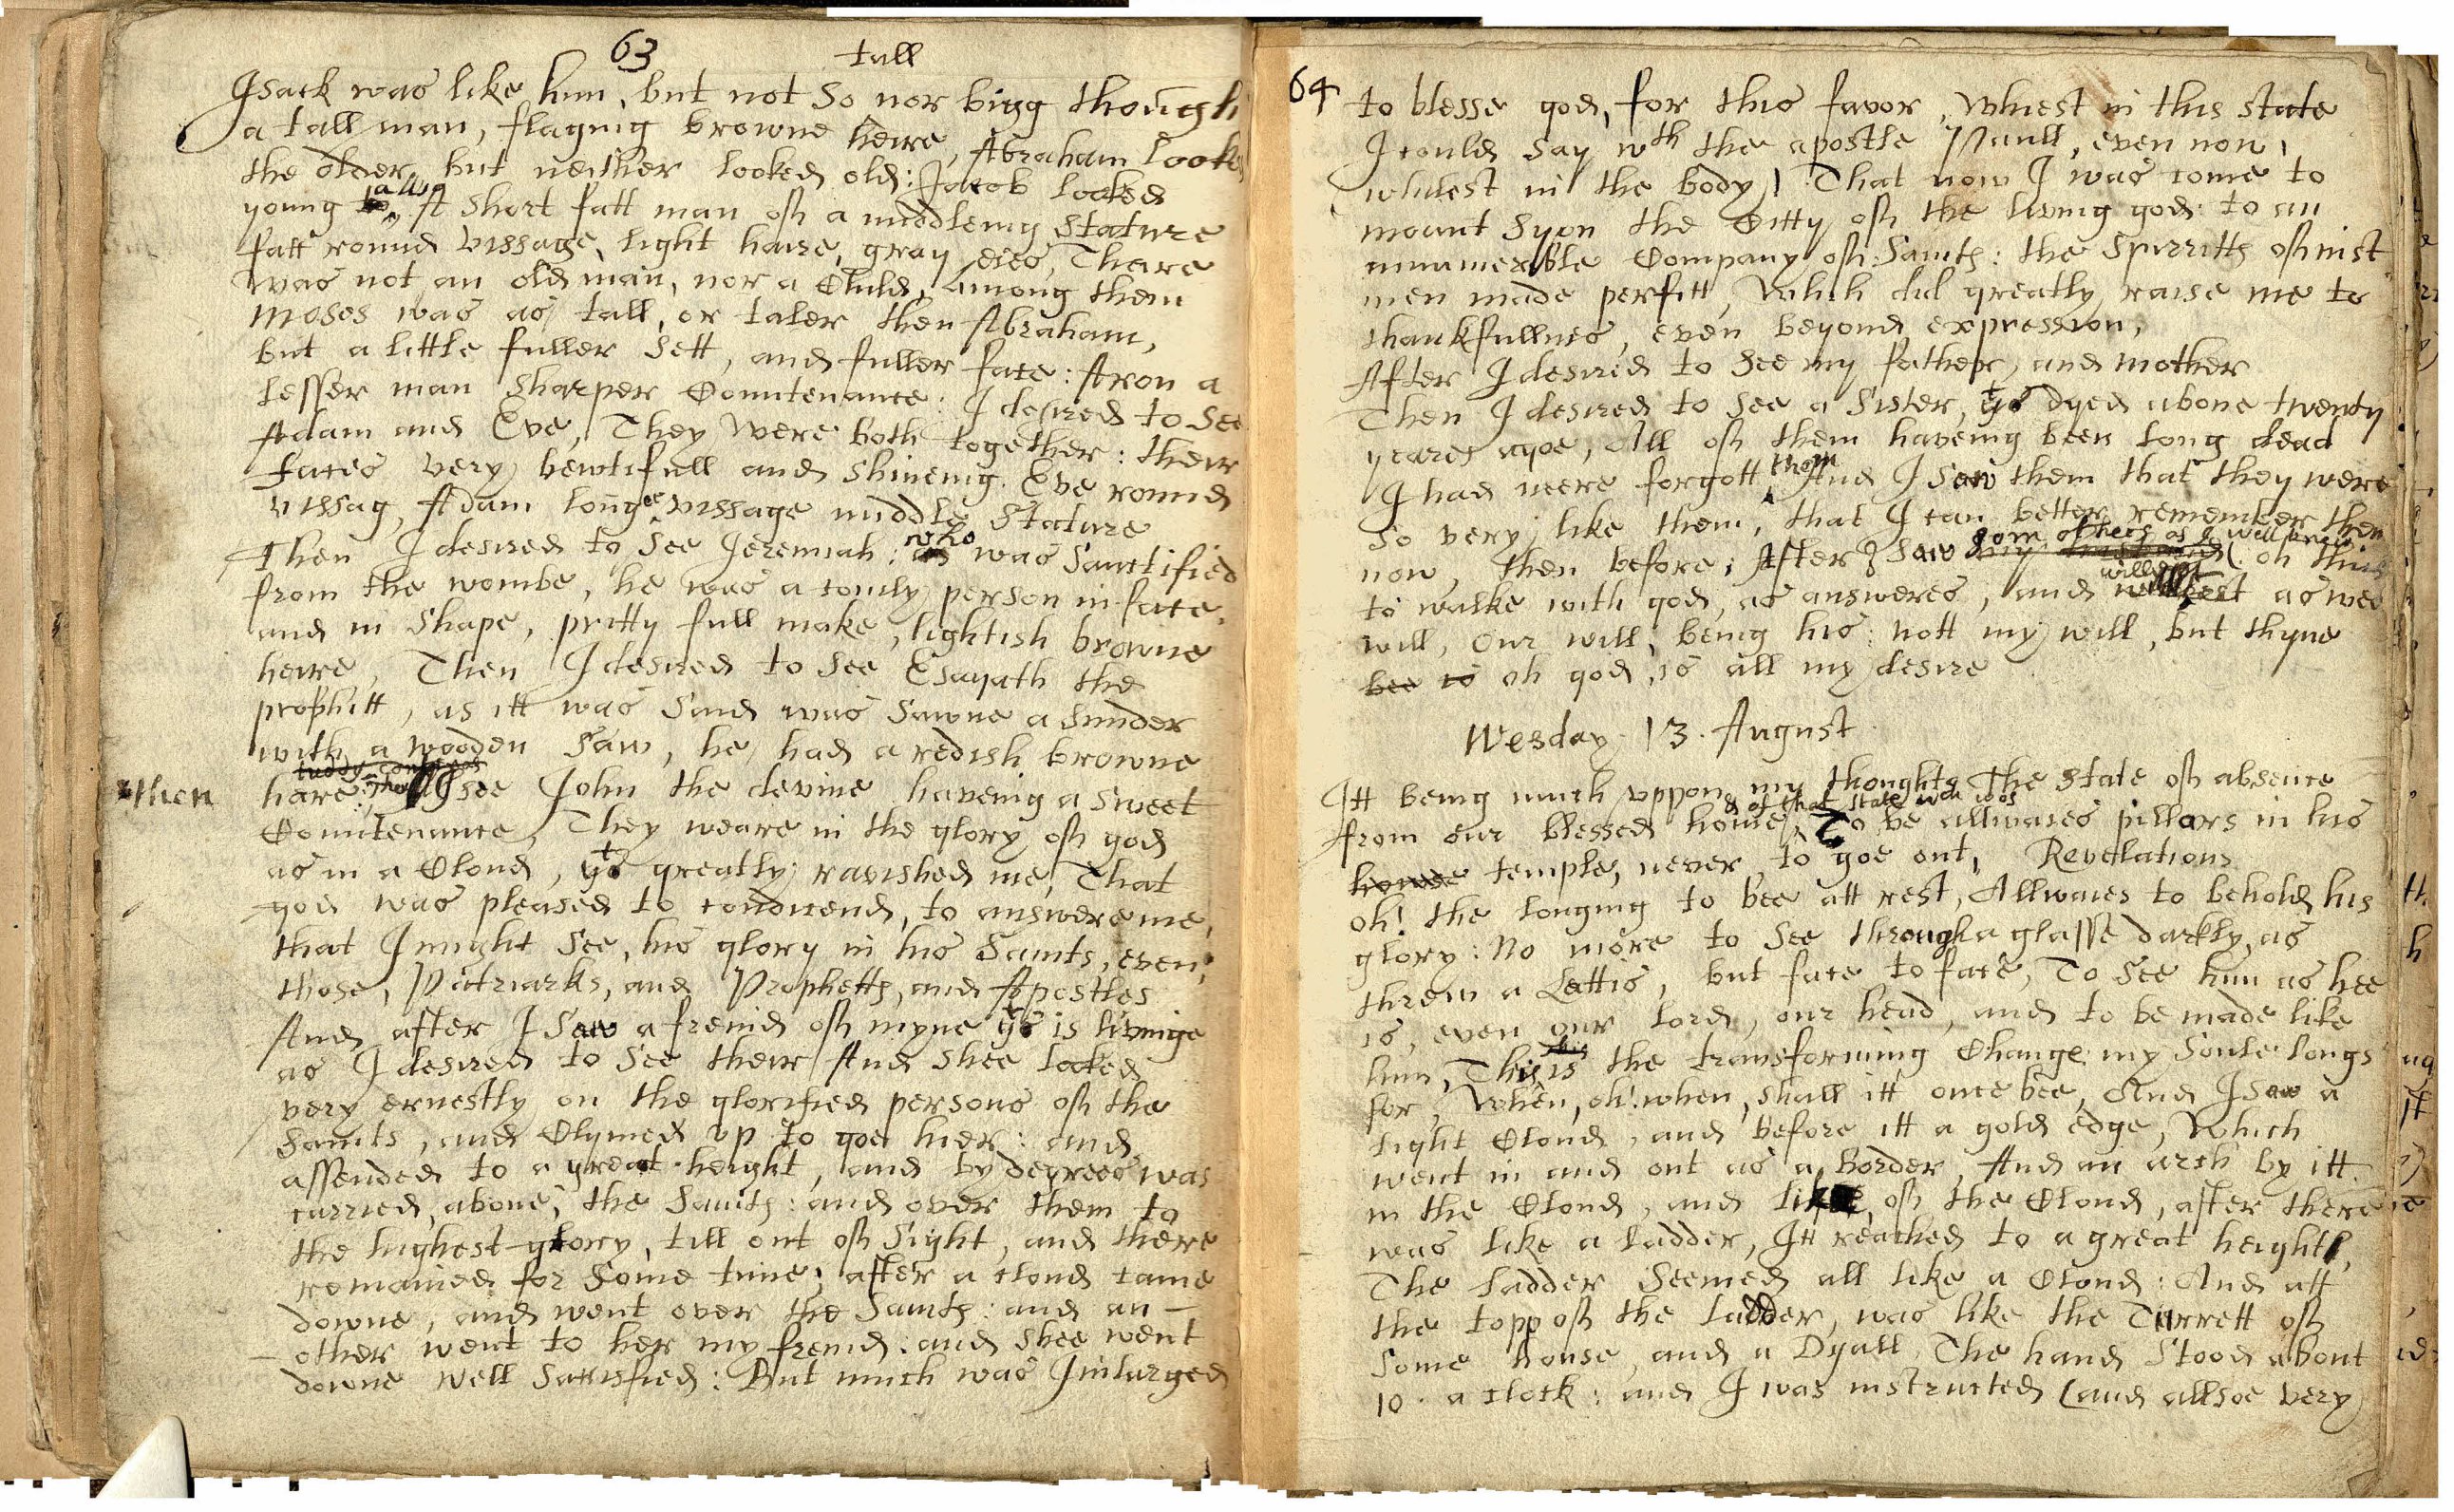 63
tall
Isack was like him, but not so nor bigg though
a tall man, flaging browne heire, Abraham looked
the older, but neither looked old: Jacob looked
allso
young A short fatt man off a middleing stature
fatt round vissage, light haire, gray eies, Theare
was not an old man, nor a Child, among them
Moses was as tall, or taler then Abraham,
but a little fuller sett, and fuller face: Aron a
lesser man sharper Countenance: I desired to see
Adam and Eve, They were both together: their
faces very bewtifull and shineing. Eve round
vissag, Adam longer vissage middle stature
who
Then I desired to see Jeremiah: was Sanctified
from the wombe, he was a comly person in face,
and in shape, pritty full make, lightish browne
heire, Then I desired to see Esayath the
prophitt, as itt was said was sawne a sunder
with a wooden saw, he had a redish browne
ruddy complexion
then hare: I see John the devine haveing a sweet
Countenance, They weare in the glory off god
as in a Cloud, yt greatly ravished me, That
god was pleased to condicend, to answere me,
that I might see, his glory in his Saints, even,
those, Patriarks, and Prophetts, and Apostles
And after I saw a freind off myne yt is liveinge
as I desired to see their And shee looked
very ernestly on the glorified persons off the
Saints, and Clymed up to goe hier: and
assended to a great height, and by degrees was
carried, above, the Saints: and over them to
the highest glory, till out off sight, and there
remained for some time; after a cloud came
downe, and went over the Saints: and an-
other went to her my freind: and shee went
downe well sattisfied: But much was Jinlarged
64
to blesse god, for this favor, Whiest in this state
I could say wth the apostle Paull, even now,
whilest in the body) That now I was come to
mount Syon the Citty off the living god: to an
innumerable Company off Saints: the Spirritts off iust
men made perfitt, Which did greatly raise me to
thankfullnes, even beyond expression,
After I desired to see my father, and mother
Then I desired to see a Sister, yt dyed above twenty
yeares agoe, All off them haveing been long dead
them
I had neere forgott And I saw them that they were
so very like them, that I can better remember them
som others as I well knew
now, then before; After I saw my husband (oh thus
willest
to walke with god, as answeres, and willest as wee
will, Our will, being his: nott my will, but thyne
bee is oh god, is all my desire
Wesday 13. August
Itt being much uppon my thoughts The state off absence
& of that state wch was
from our blessed home, To be allwaies pillars in his
house temple, never to goe out, Revelations
oh! the longing to bee att rest, Allwaies to behold his
glory: No more to see through a glasse darkly, as
threw a Lattis, but face to face, To see him as hee
is, even our lord, our head, and to be made like
him, This is the transforming Change my Soule longs
for, When, oh! when, shall itt once bee, And I saw a
light Cloud, and before itt a gold edge, Which
went in and out as a border, And an arch by itt
in the Cloud, and like off the Cloud, after there
was like a ladder, Itt reached to a great height,
The ladder seemed all like a Cloud: And att
the topp off the ladder, was like the Turrett off
some house, and a Dyall, The hand Stood about
10. a clock: and I was instructed (and allsoe very